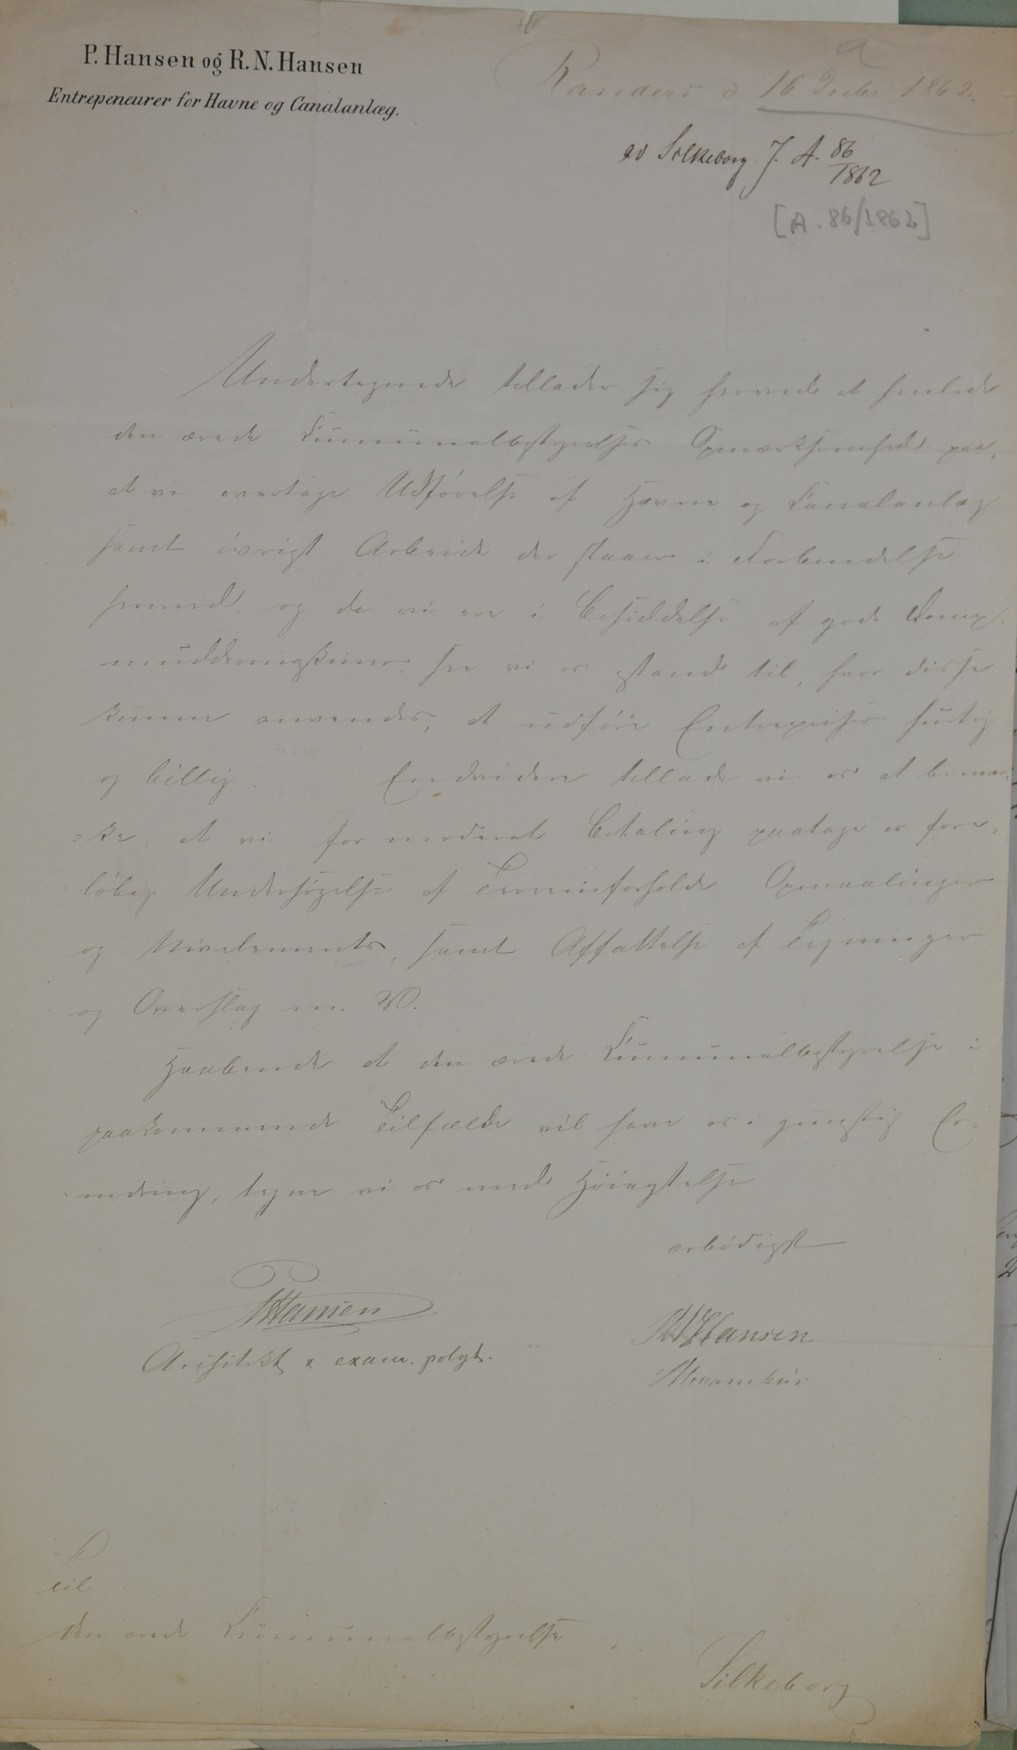 P. Hansen og R. N. Hansen
Entrepeneurer for Havne og Canalanlæg.
a
Randers d 16 Decbr 1862.
ad Silkeborg J. A. 86/1862
[A. 86/1862]
Undertegnede tillader sig herved at henlede
den ærede Kummunalbestyrelses Opmærksomhed paa,
at vi overtage Udførelse af Havne og Canalanlæg
samt øvrigt Arbeide der staaer i Forbindelse
hermed, og da vi ere i Besiddelse af gode Damp-
muddermaskiner, see vi os istand til, hvor disse
kunne anvendes, at udføre Entrepriser hurtig
og billig. Endvidere tillade vi os at bemær-
=ke, at vi for moderat Betaling paatage os fore-
løbig Undersøgelse af Terrainforholde Opmaalinger
og Nivelements, samt Affattelse af Tegninger
og Overslag m. V.
Haabende at den ærede Kummunalbestyrelse i
paakommende Tilfælde vil have os i gunstig Er-
indring, tegne vi os med Høiagtelse
ærbødigst
P Hansen
RN Hansen
Architekt & exam. polyt.
Til
den ærede Kummunalbestyrelse
Silkeborg